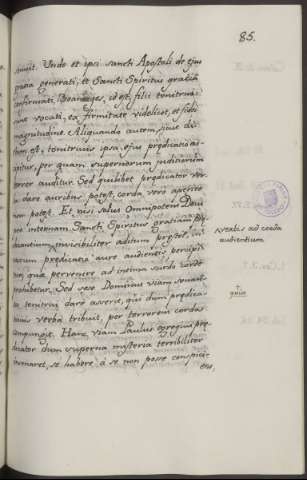 85.
Unde et ipsi sancti Apostoli de ejus
gratia generati, et Sancti Spiritus gratia
confirmati, Boanerges, id est, filii tonitrui
sunt vocati, ex firmitate videlicet, et fidei
magnitudine. Aliquando autem, sicut dic
tum est, tonitruus ipsa ejus praedicatio ac
cipitur, per quam supernorum judiciorum
terror auditur. Sed quilibet praedicator ver
ba dare auribus potest, corda vero aperire
non potest. Et nisi solus Omnipotens Deus
internam Sancti Spiritus gratiam
invisibiliter aditum praestet,
praedicatio aure audientis percipi
tur, quae pervenire ad intima surdo corde
prohibetur. Sed vero Dominus viam sonant
is tonitrui dare asserit, qui dum praedica
tionis verba tribuit, per terrorem corda
compungit. Hanc viam Paulus egregius prae
dicator dum superna mysteria terribiliter
intonaret, se habere a se non posse conspici
ens,
ad corda
audientium